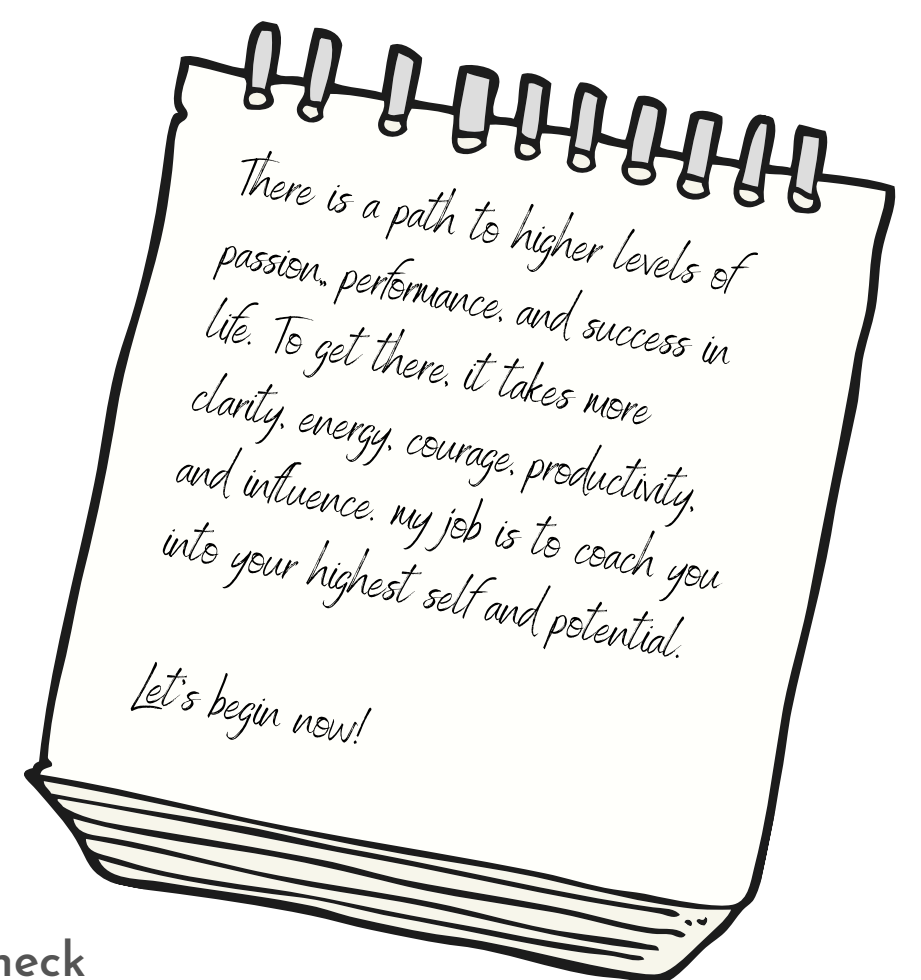 There is a path to higher levels of
passion,, performance, and success in
life. To get there, it takes more
clarity, energy, courage, productivity,
and influence. my job is to coach you
into your highest self and potential.
Let's begin now!